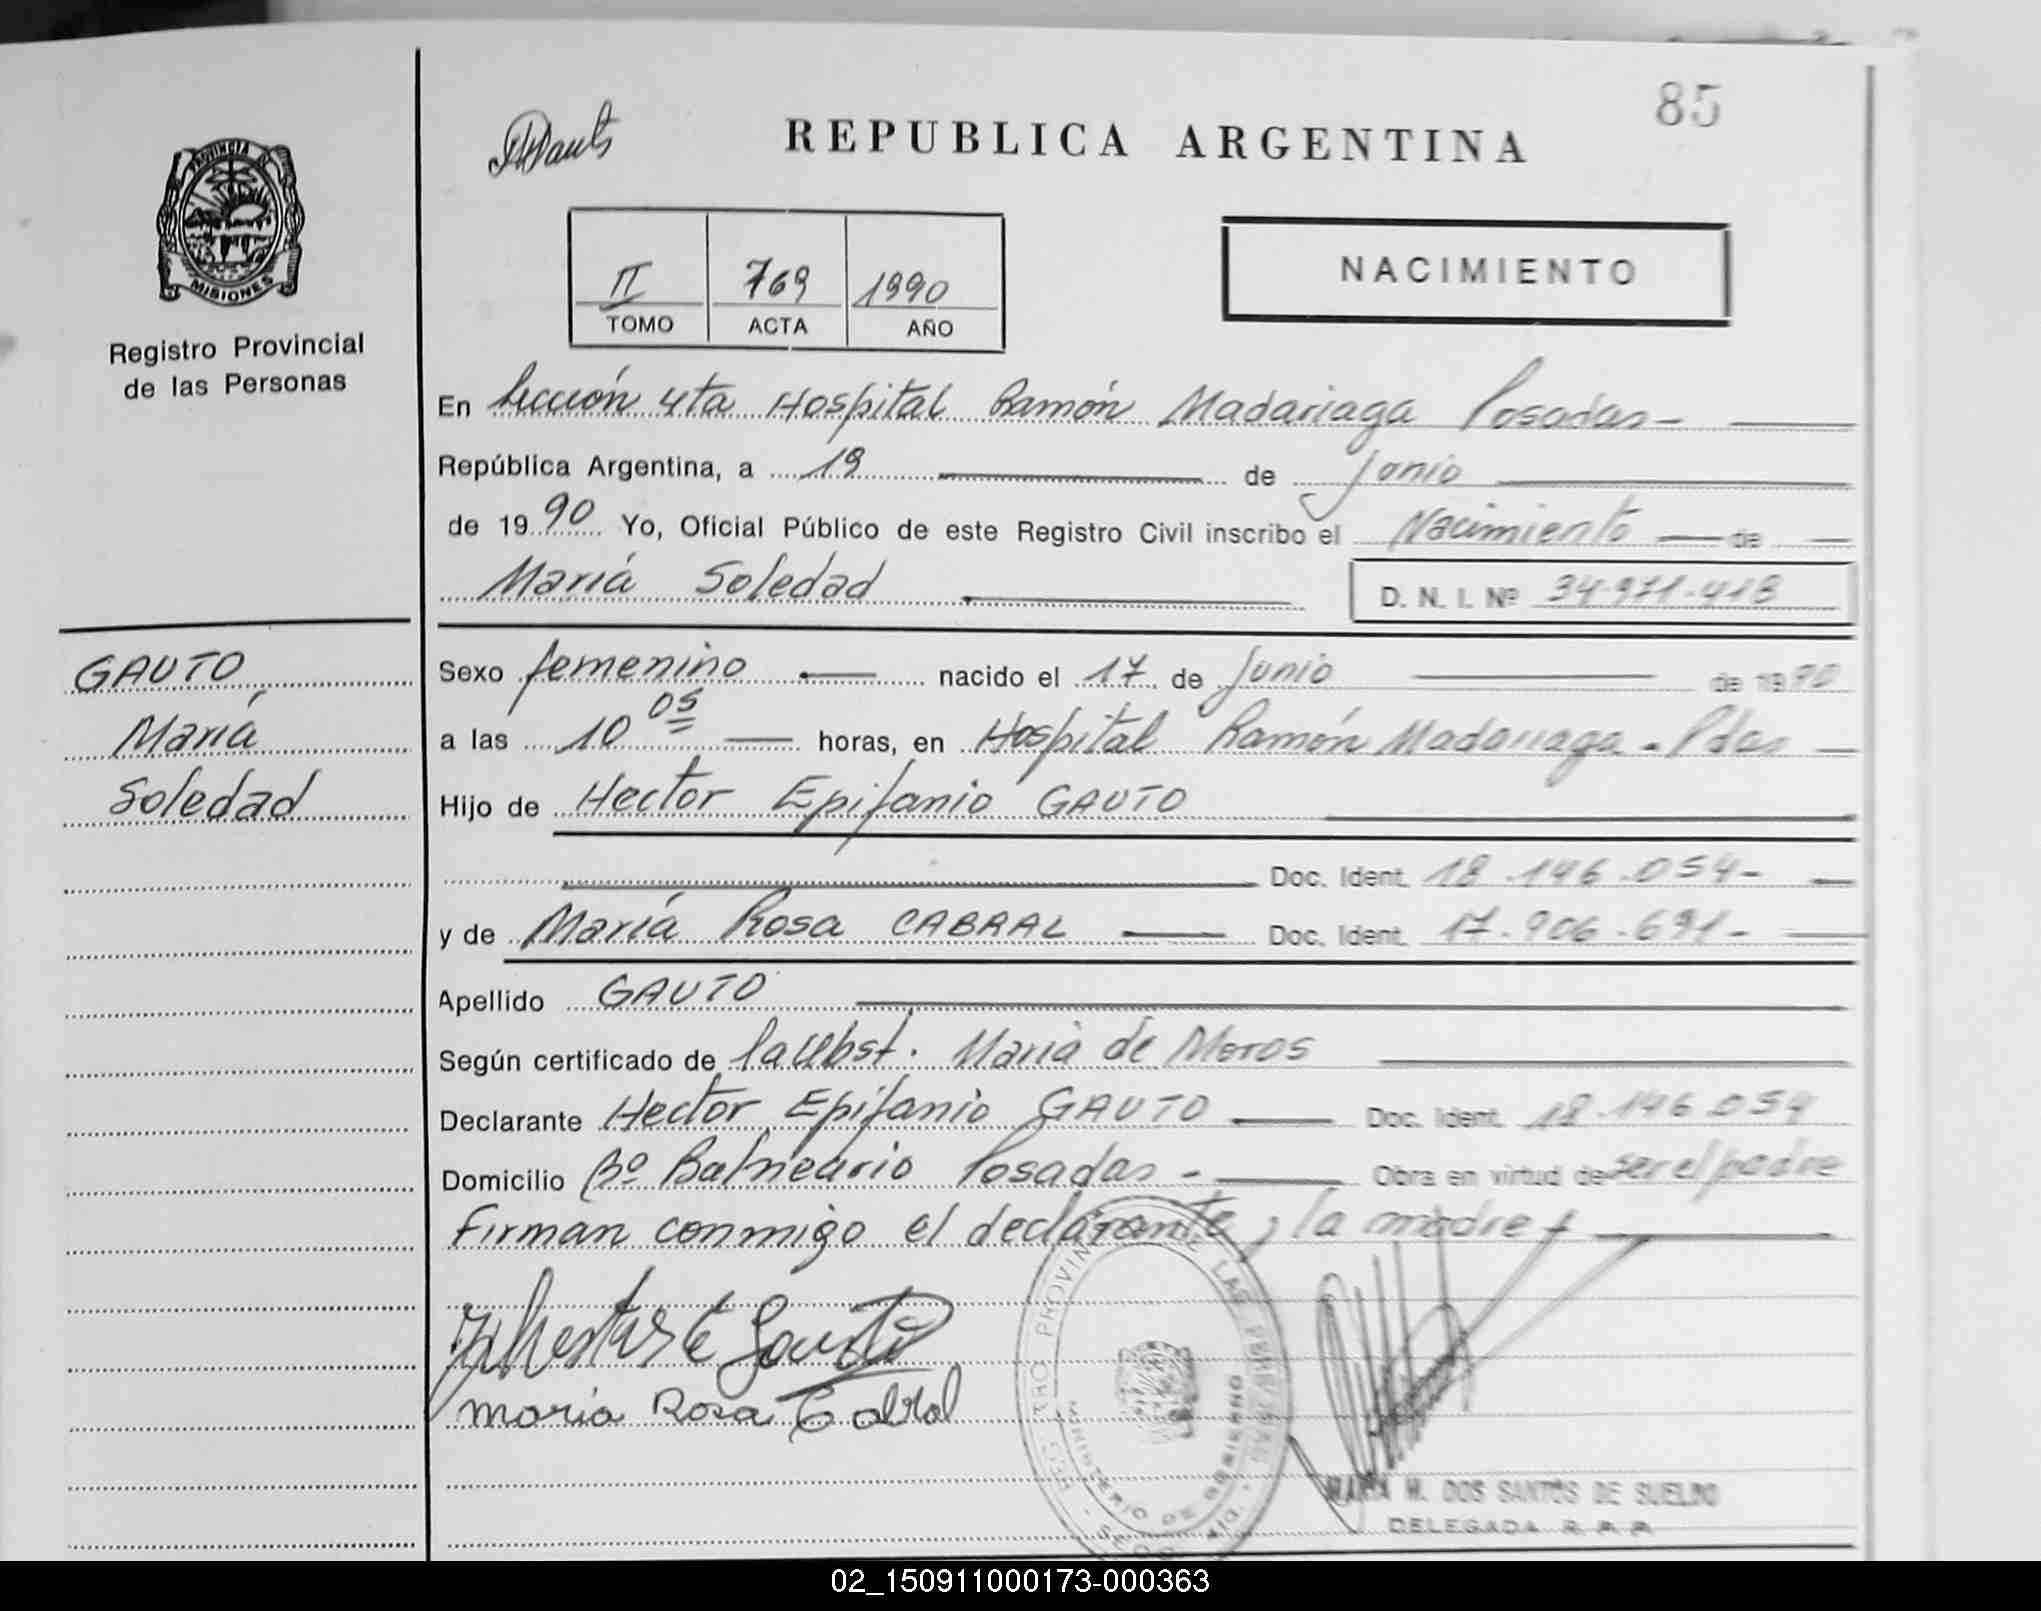 85
REPUBLICA ARGENTINA
PROVINCIA DE
MISIONES
Registro Provincial
de las Personas
II 769 1990
TOMO ACTA AÑO
NACIMIENTO
En Sección 4ta Hospital Ramón Madariaga Posadas-
República Argentina, a 19 de Junio
de 1990 Yo, Oficial Público de este Registro Civil inscribo el Nacimiento de
María Soledad
D. N. I. Nº 34.971.418
GAUTO
María
Soledad
Sexo femenino nacido el 17 de Junio de 1990
a las 10 05 horas, en Hospital Ramón Madariaga - Pdas
Hijo de Hector Epifanio GAUTO
Doc. Ident. 18.146.054-
y de María Rosa CABRAL Doc. Ident. 17.906.691-
Apellido GAUTO
Según certificado de la Obst. María de Moros
Declarante Hector Epifanio GAUTO Doc. Ident. 18.146.054
Domicilio Bº Balneario Posadas - Obra en virtud de ser el padre
Firman conmigo el declarante y la madre
Maria Rosa Cabral
MINISTERIO DE GOBIERNO
MARIA H. DOS SANTOS DE SUELDO
DELEGADA R. P. P.
02_150911000173-000363